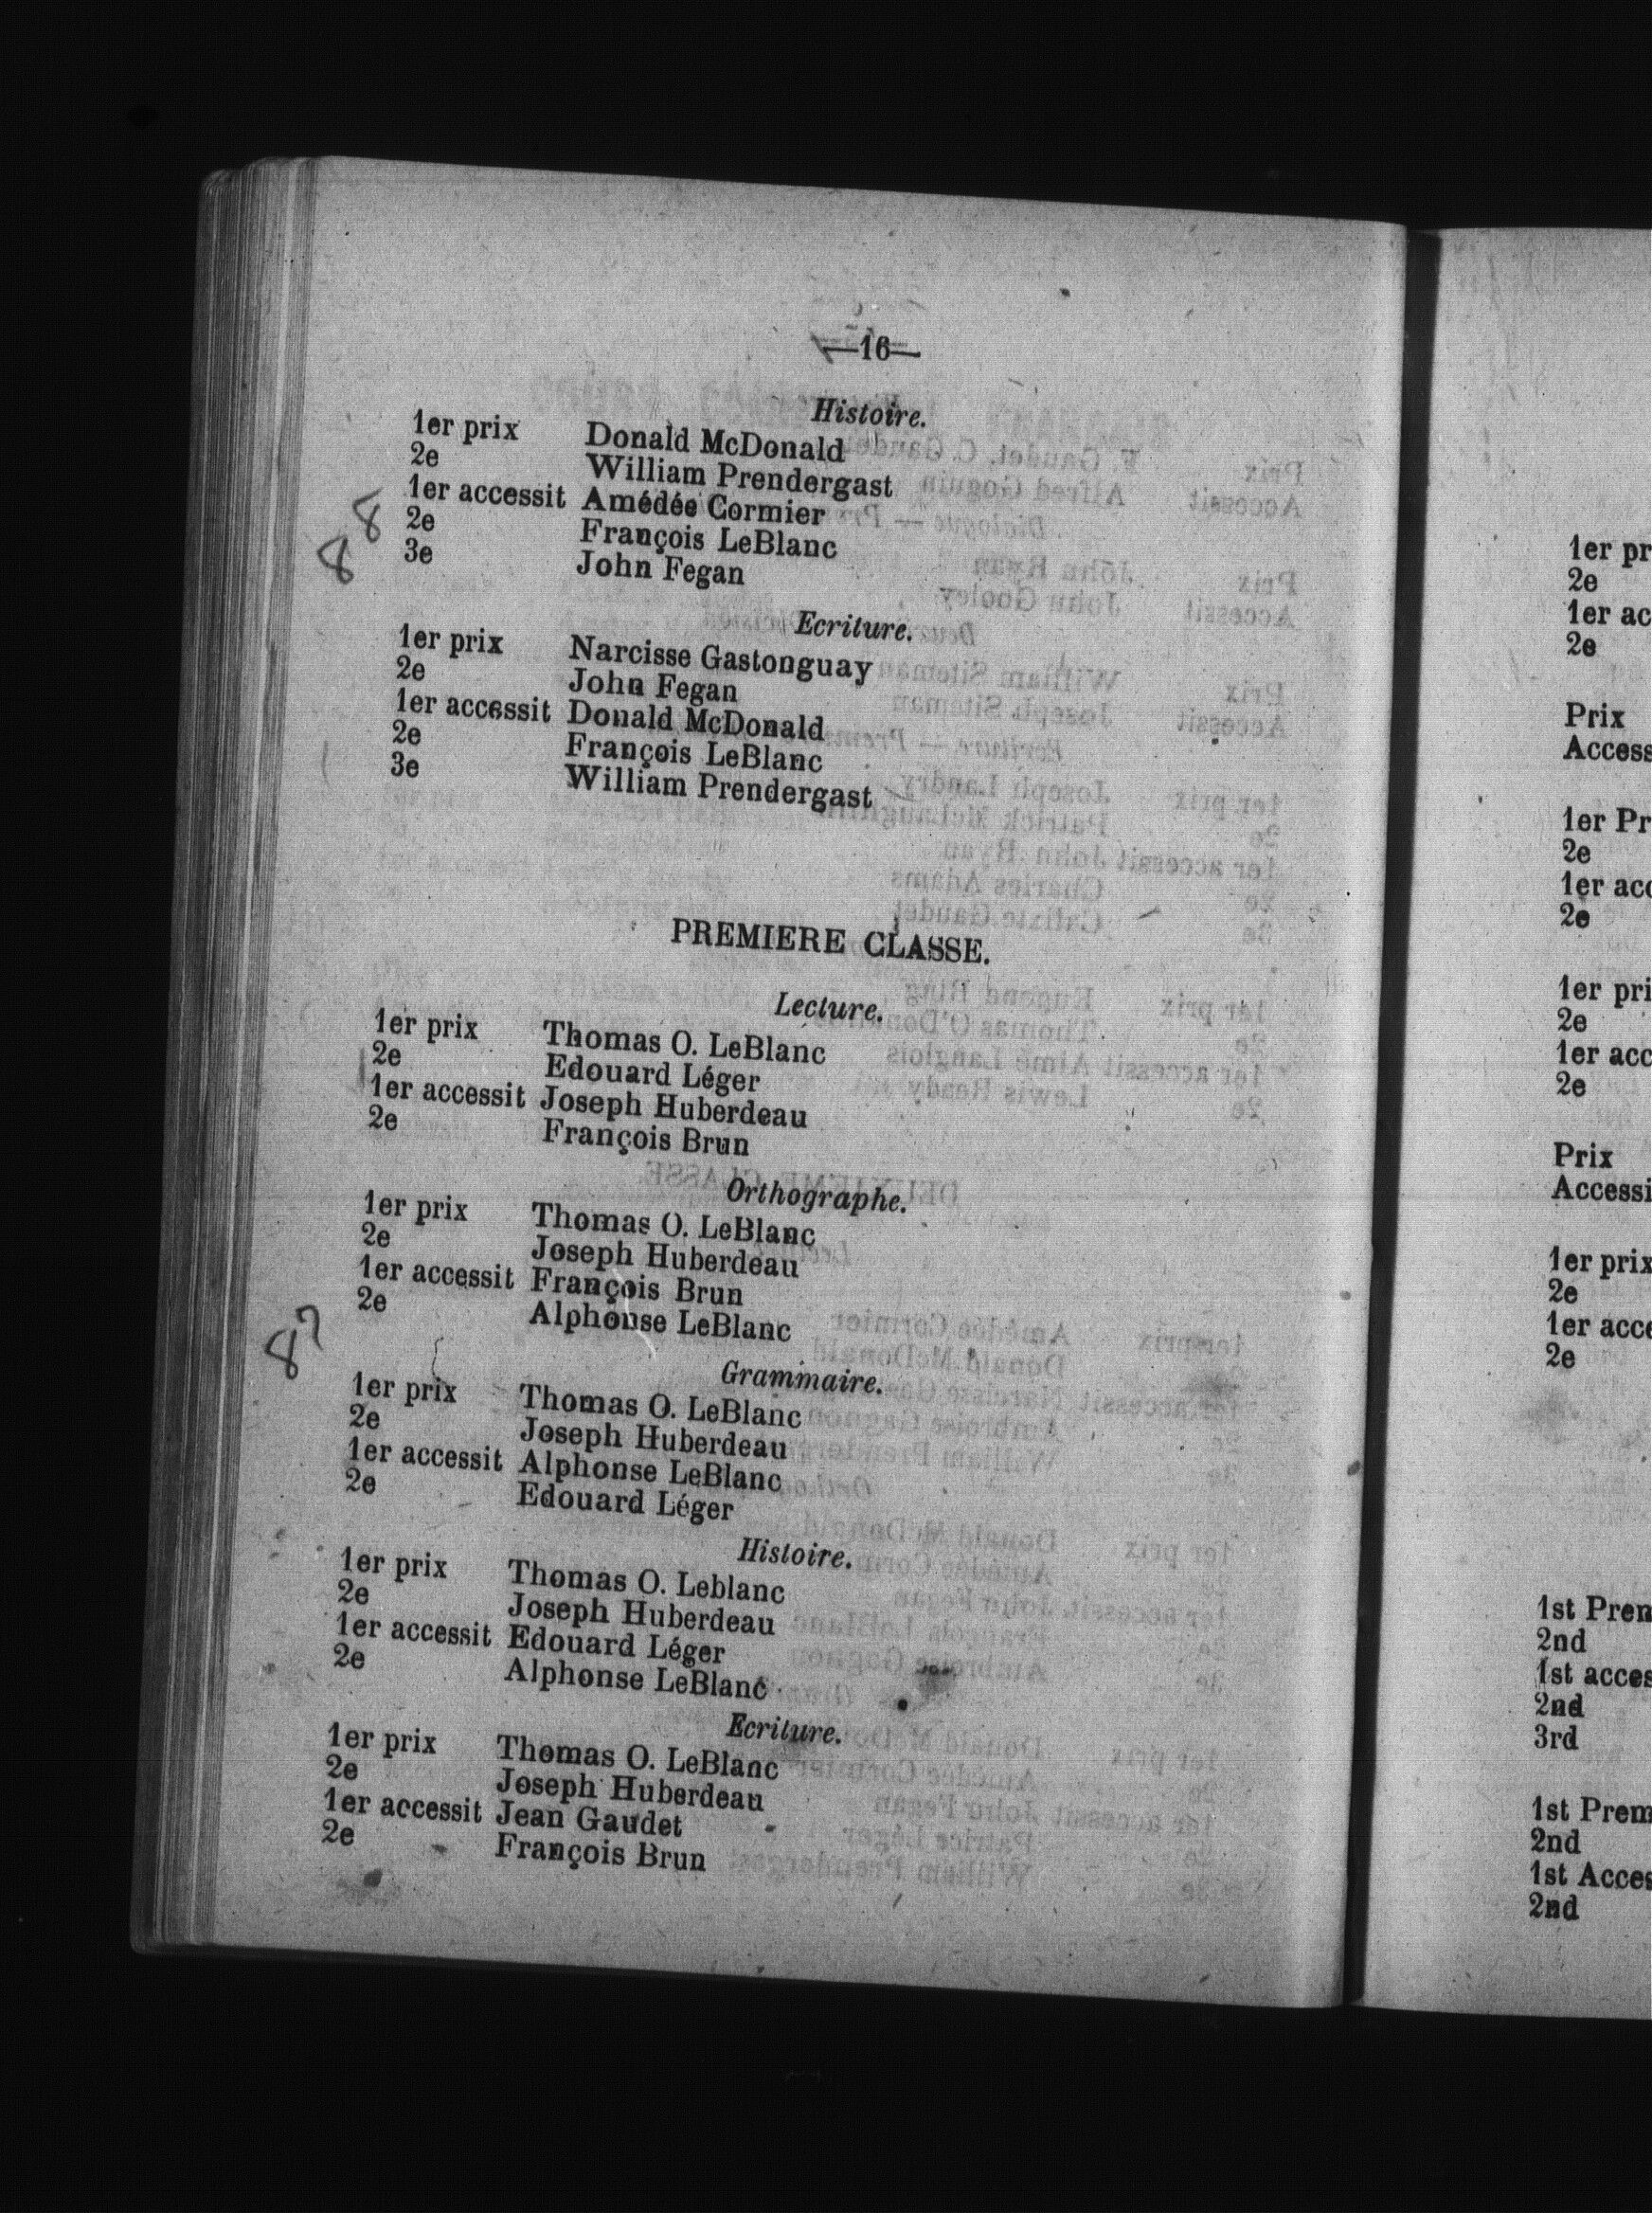 —16—
Histoire.
1er prix Donald McDonald
2e William Prendergast
1er accessit Amédée Cormier
2e François LeBlanc
3e John Fegan
8 8
Ecriture.
1er prix Narcisse Gastonguay
2e John Fegan
1er accessit Donald McDonald
2e François LeBlanc
3e William Prendergast
PREMIERE CLASSE.
Lecture.
1er prix Thomas O. LeBlanc
2e Edouard Léger
1er accessit Joseph Huberdeau
2e François Brun
Orthographe.
1er prix Thomas O. LeBlanc
2e Joseph Huberdeau
1er accessit François Brun
2e Alphonse LeBlanc
Grammaire.
1er prix Thomas O. LeBlanc
2e Joseph Huberdeau
1er accessit Alphonse LeBlanc
2e Edouard Léger
Histoire.
1er prix Thomas O. Leblanc
2e Joseph Huberdeau
1er accessit Edouard Léger
2e Alphonse LeBlanc
Ecriture.
1er prix Thomas O. LeBlanc
2e Joseph Huberdeau
1er accessit Jean Gaudet
2e François Brun
1er pr
2e
1er ac
2e
Prix
Access
1er Pr
2e
1er acc
2e
1er pri
2e
1er acc
2e
Prix
Accessi
1er prix
2e
1er acce
2e
1st Prem
2nd
1st acces
2nd
3rd
1st Prem
2nd
1st Acces
2nd